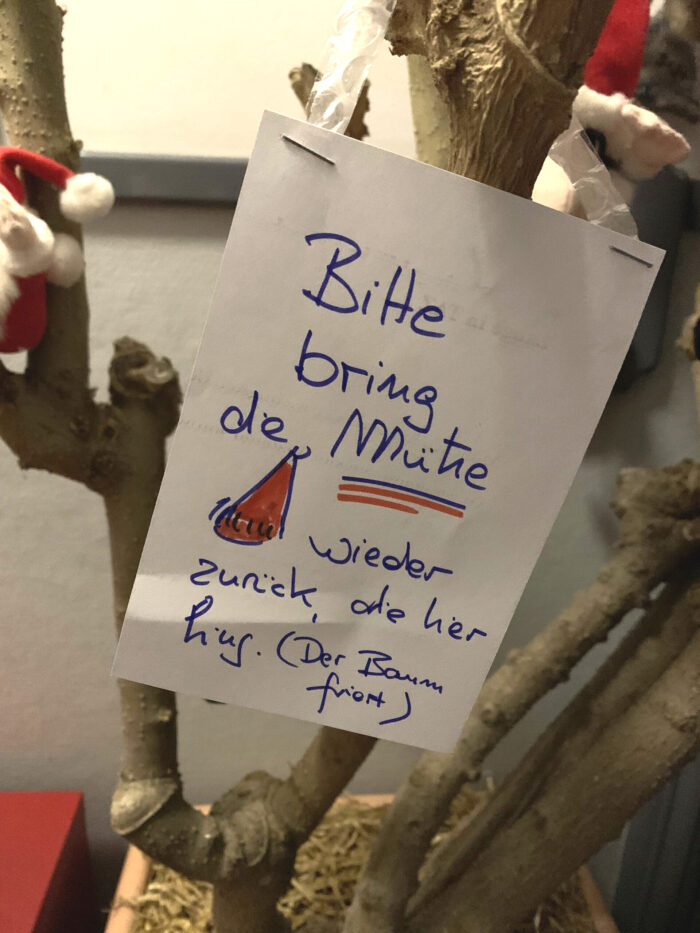 Bitte
bring
die Mütze
wieder
zurück, die hier
hing. (Der Baum
friert)